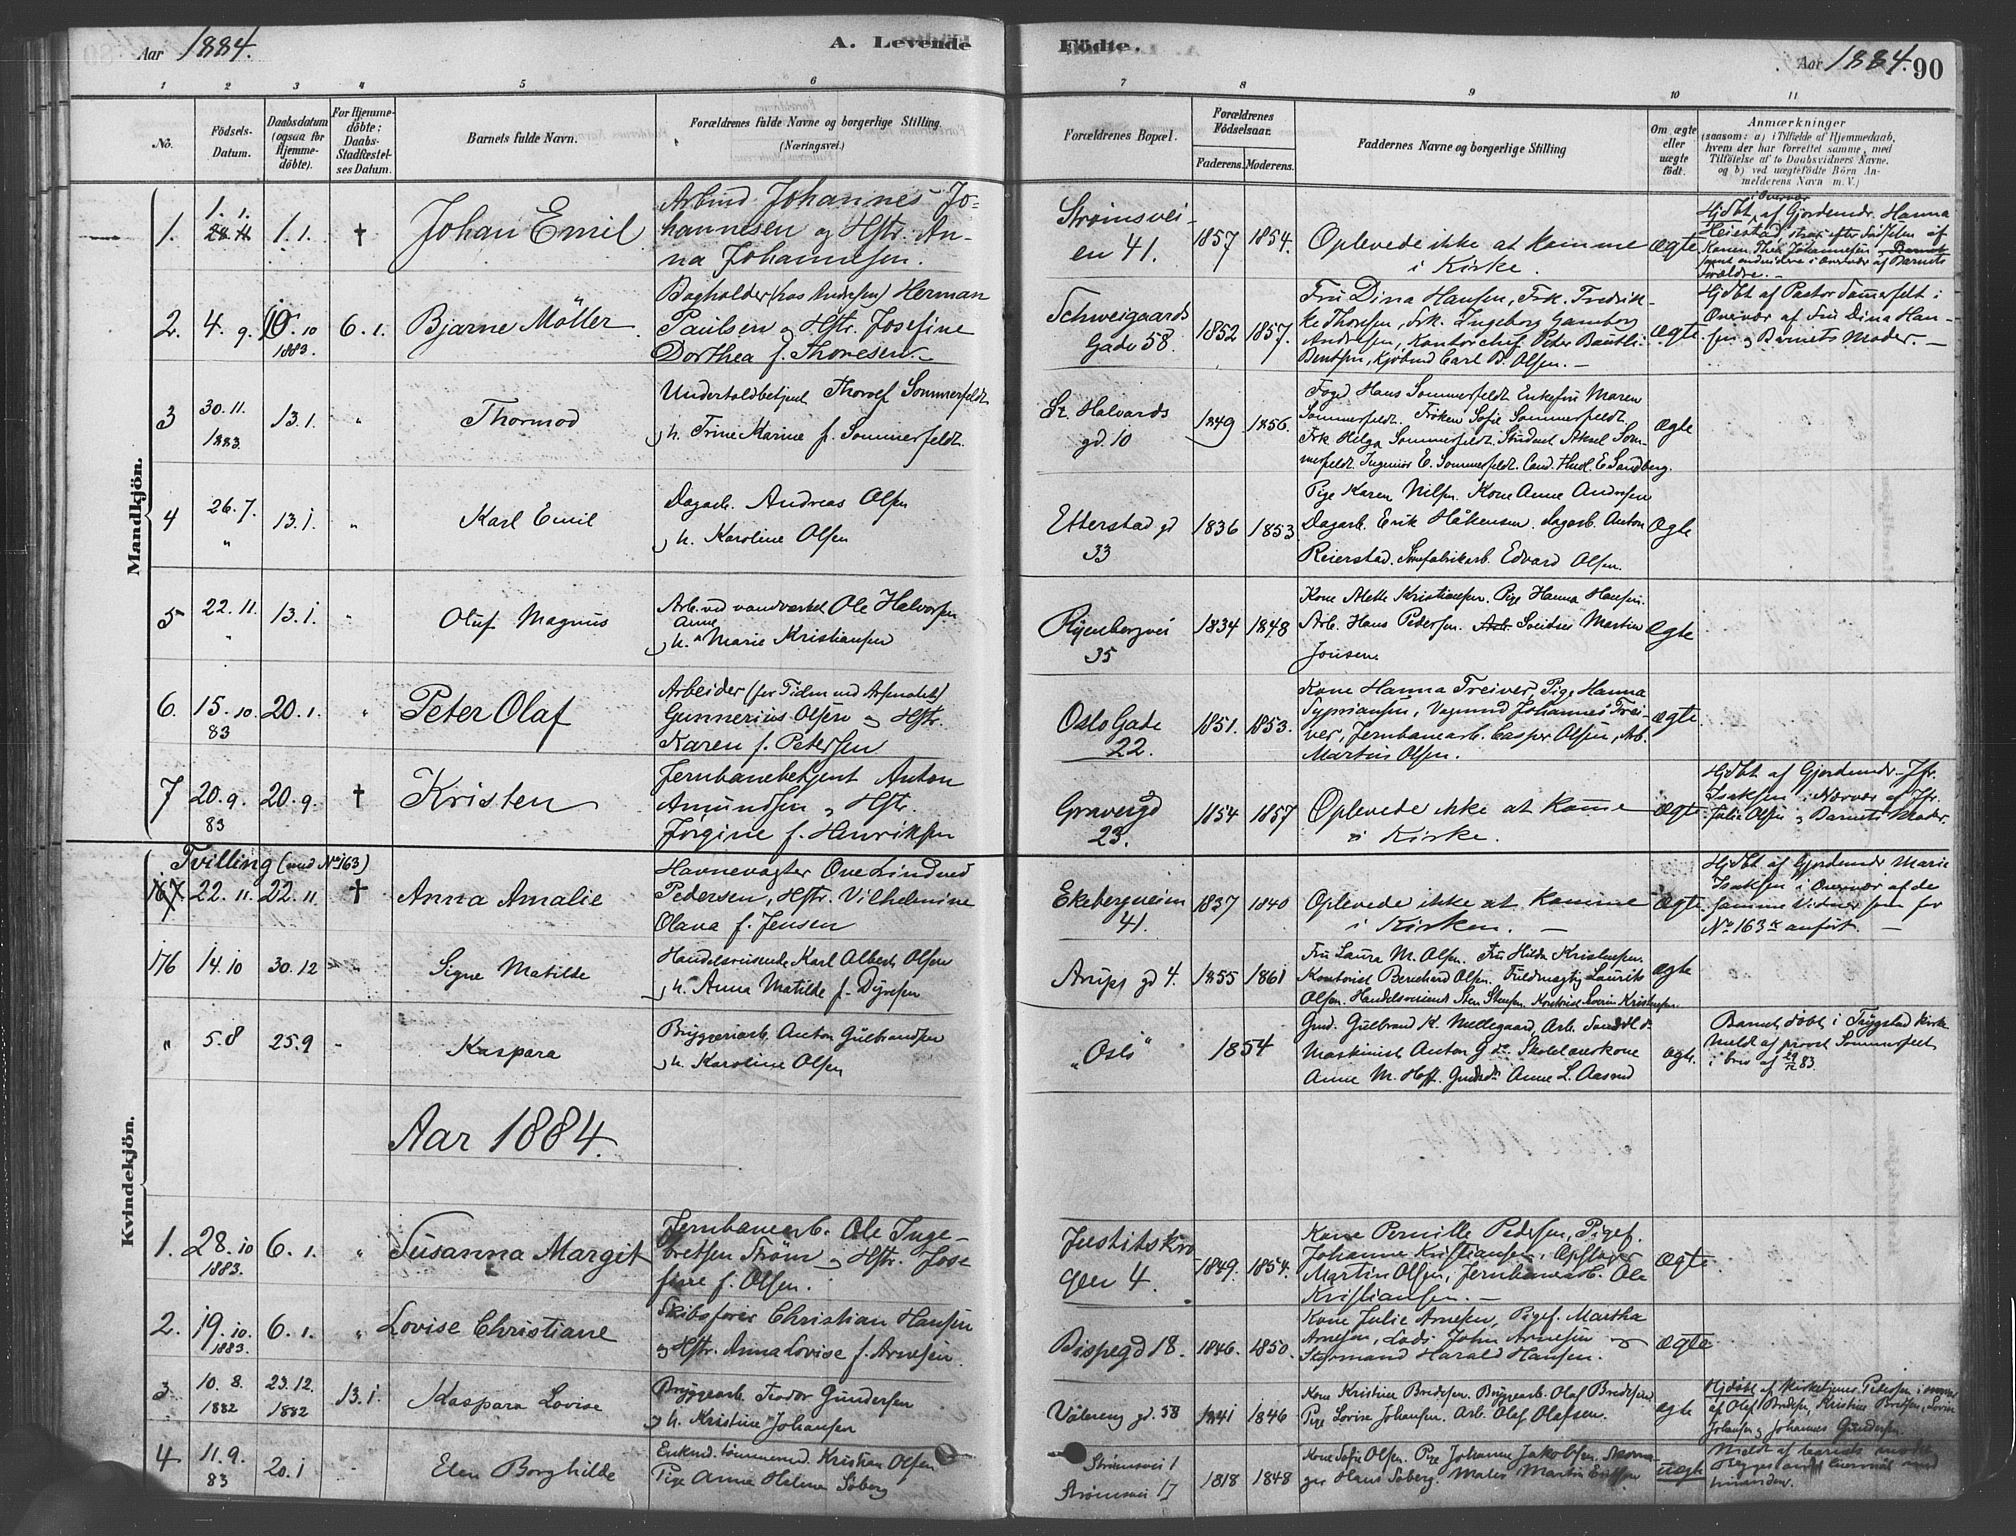 Aar 1884.
A. Levende
Födte.
Aar 1884. 90
1 2 3 4 5 6 7 8 9 10 11
No.
Födsels-
Datum.
Daabsdatum
(ogsaa for
Hjemme-
döbte).
For Hjemme-
döbte;
Daabs-
Stadfæstel-
ses Datum.
Barnets fulde Navn.
Forældrenes fulde Navne og borgerlige Stilling.
(Næringsvei.)
Forældrenes Bopæl.
Forældrenes
Födselsaar.
Faderens. Moderens.
Faddernes Navne og borgerlige Stilling
Om ægte
eller
uægte
født.
Anmærkninger
(saasom: a) i Tilfælde af Hjemmedaab,
hvem der har forrettet samme, med
Tilföielse af to Daabsvidners Navne,
og b) ved uægtefödte Börn An-
melderens Navn m. V.)
Mandkjön.
1. 1. 1. 1.1. † Johan Emil
Arbmd. Johannes Jo-
hannesen og Hstr. An-
na Johannesen.
Strömsvei-
en 41. 1857 1854.
Oplevede ikke at komme
i Kirke.
ægte
Hjdbt. af Gjordemdr. Hanna
Heiestad strax efter
2. 4. 9. 10. 10 1883. 6. 1. Bjarne Möller
Bogholder (hos Andresen) Herman
Paulsen og Hstr. Josefine
Dorthea f. Thonesen.
Schweigaards
Gade 58. 1852 1857.
Fru Dina Hansen, Frk. Fredrik-
ke Thonesen, Frk. Ingeborg Gamborg
Andresen, Kontorchef Peter
Bentsen, Kjöbmd Carl B. Olsen.
ægte
Hjdbt af Pastor Sommerfelt i
Overvær af Fru Dina Han-
sen og Barnets Moder.
3 30. 11. 1883 13.1. " Thormod
Undertoldbetjent Thorolf Sommerfeldt
og H. Trine Karine f. Sommerfeldt.
St. Halvards
gd. 10 1849 1856.
Foged Hans Sommerfeldt. Enkefru Maren
Sommerfeldt. Fröken Sofie Sommerfeldt.
Frk Helga Sommerfeldt. Student Aksel Som-
merfeldt. Ingeniör E. Sommerfeldt. Cand. theol. E. Sandberg.
ægte
4 26. 7. " 13.1. " Karl Emil
Dagarb. Andreas Olsen
og H. Karoline Olsen
Etterstad gd
33 1836 1853
Pige Karen Nilsen. Kone Anne Andresen
Dagarb. Erik Håkensen. Dagarb. Anton
Reierstad. Edvard Olsen.
Ægte
5 22. 11. " 13.1. " Oluf Magnus
Arb. ved vandværket Ole Halvorsen
og H. Anne Marie Kristiansen
Ryenbergvei
35 1834 1848
Kone Mette Kristiansen. Pige Hanna Hansen.
Arb. Hans Pedersen. Martin
Jonsen.
Ægte
6. 15. 10. 83 20. 1. " Peter Olaf
Arbeider (for Tiden ved Arsenalet)
Gunnerius Olsen og Hstr.
Karen f. Petersen
Oslo Gade
22. 1851. 1853.
Kone Hanna Treiver, Pige Hanna
Syprianssen, Vognmd Johannes Trei-
ver, Jernbanearb. Casper Olsen, Arb.
Martin Olsen.
ægte
7 20. 9. 83 20. 9. † Kristen
Jernbanebetjent Anton
Amundsen og Hstr.
Jörgine f. Henriksen
Gravergd
23. 1854 1857
Oplevede ikke at komme
i Kirke.
ægte
Hjdbt af Gjordemdr. Jfr.
Isaksen i Nærvær af Jfr.
Julie Olsen og Barnets Moder.
Kvindekjön.
Tvilling (med No 163)
167 22. 11. 22. 11 † Anna Amalie
Havnevogter Ove Lindved
Pedersen, Hstr. Vilhelmine
Olava f. Jensen
Ekebergveien
41. 1837 1840
Oplevede ikke at komme
i Kirken.
Ægte
Hjdbt af Gjordemdr Marie
Isaksen i Overvær af de
samme Vidner som for
No 163 anfört
176 14. 10 30. 12 Signe Matilde
Handelsreisende Karl Albert Olsen
og H. Anna Matilde f. Dyresen
Arups gd 4. 1855 1861
Fru Laura M. Olsen. Fru Hilda Kristensen.
Kontorist Bernhard Olsen. Fuldmægtig Laurits
Olsen. Sten Stensen. Kontorist Kristensen.
Ægte
" 5. 8 25. 9 - Kaspara
Bryggeriarb. Anton Gulbrandsen
og H. Karoline Olsen
"Oslo" 1854
Gmd. Gulbrand K. Arb.
Maskinist Anton G. Skolelærerkone
Anne M. Hoff. Anne L. Aasrud
ægte.
Barnet döbt i Trygstad Kirke
Meldt af provst Sommerfelt
i brev af 83.
Aar 1884.
1. 28. 10 1883. 6. 1. " Susanna Margit
Jernbanearb. Ole Inge-
bretsen Ström og Hstr. Jose
fine f. Olsen.
Justitskro
gen 4 1849. 1854.
Kone Pernille Pedersen, Pigef.
Johanne Kristiansen, Opsynsm.
Martin Olsen, Jernbanearb. Ole
Kristiansen.
ægte.
2. 19. 10. 1883. 6. 1. " Lovise Christiane
Skibsförer Christian Hansen
og Hstr. Anna Lovise f. Arnesen.
Bispegd 18. 1846. 1850.
Kone Julie Arnesen, Pigef. Martha
Arnesen, Lods John Arnesen og
Styrmand Harald Hansen.
ægte
3 10. 8. 1882 23. 12. 1882 13. 1 Kaspara Lovise
Bryggearb. Teodor Gundersen
og H. Kristine Johansen
Vålereng gd. 58 1841 1846
Kone Kristine Bredesen. Bryggearb. Olaf Bredesen
Pige Lovise Johansen. Arb. Olef Olafsen.
ægte
Hjdöbt af Kirketjener Pedersen i
af Olaf Bredesen, Kristine Bredesen, Lovise
Johansen og Johannes Gundersen.
4 11. 9. 83 20. 1 Elen Borghilde
Enkmd. tömmermd. Kristian Olsen
Pige Anne Helene Söberg
Strömsvei 1
Strömsvei 17 1818 1848
Kone Sofie Olsen. Pige Johanne Jakobsen. Skoma-
ger Hans Söberg. Maler Martin
uægte
Meldt af barnets moder